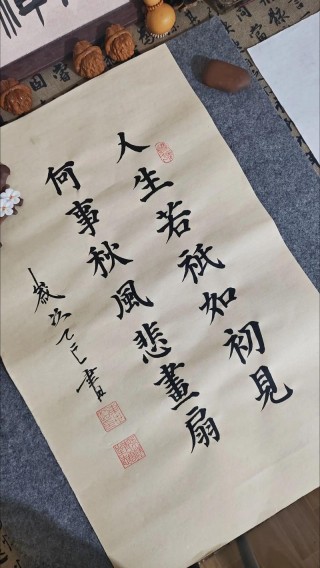 人生若祇如初見
何事秋風悲畫扇
歲次乙巳